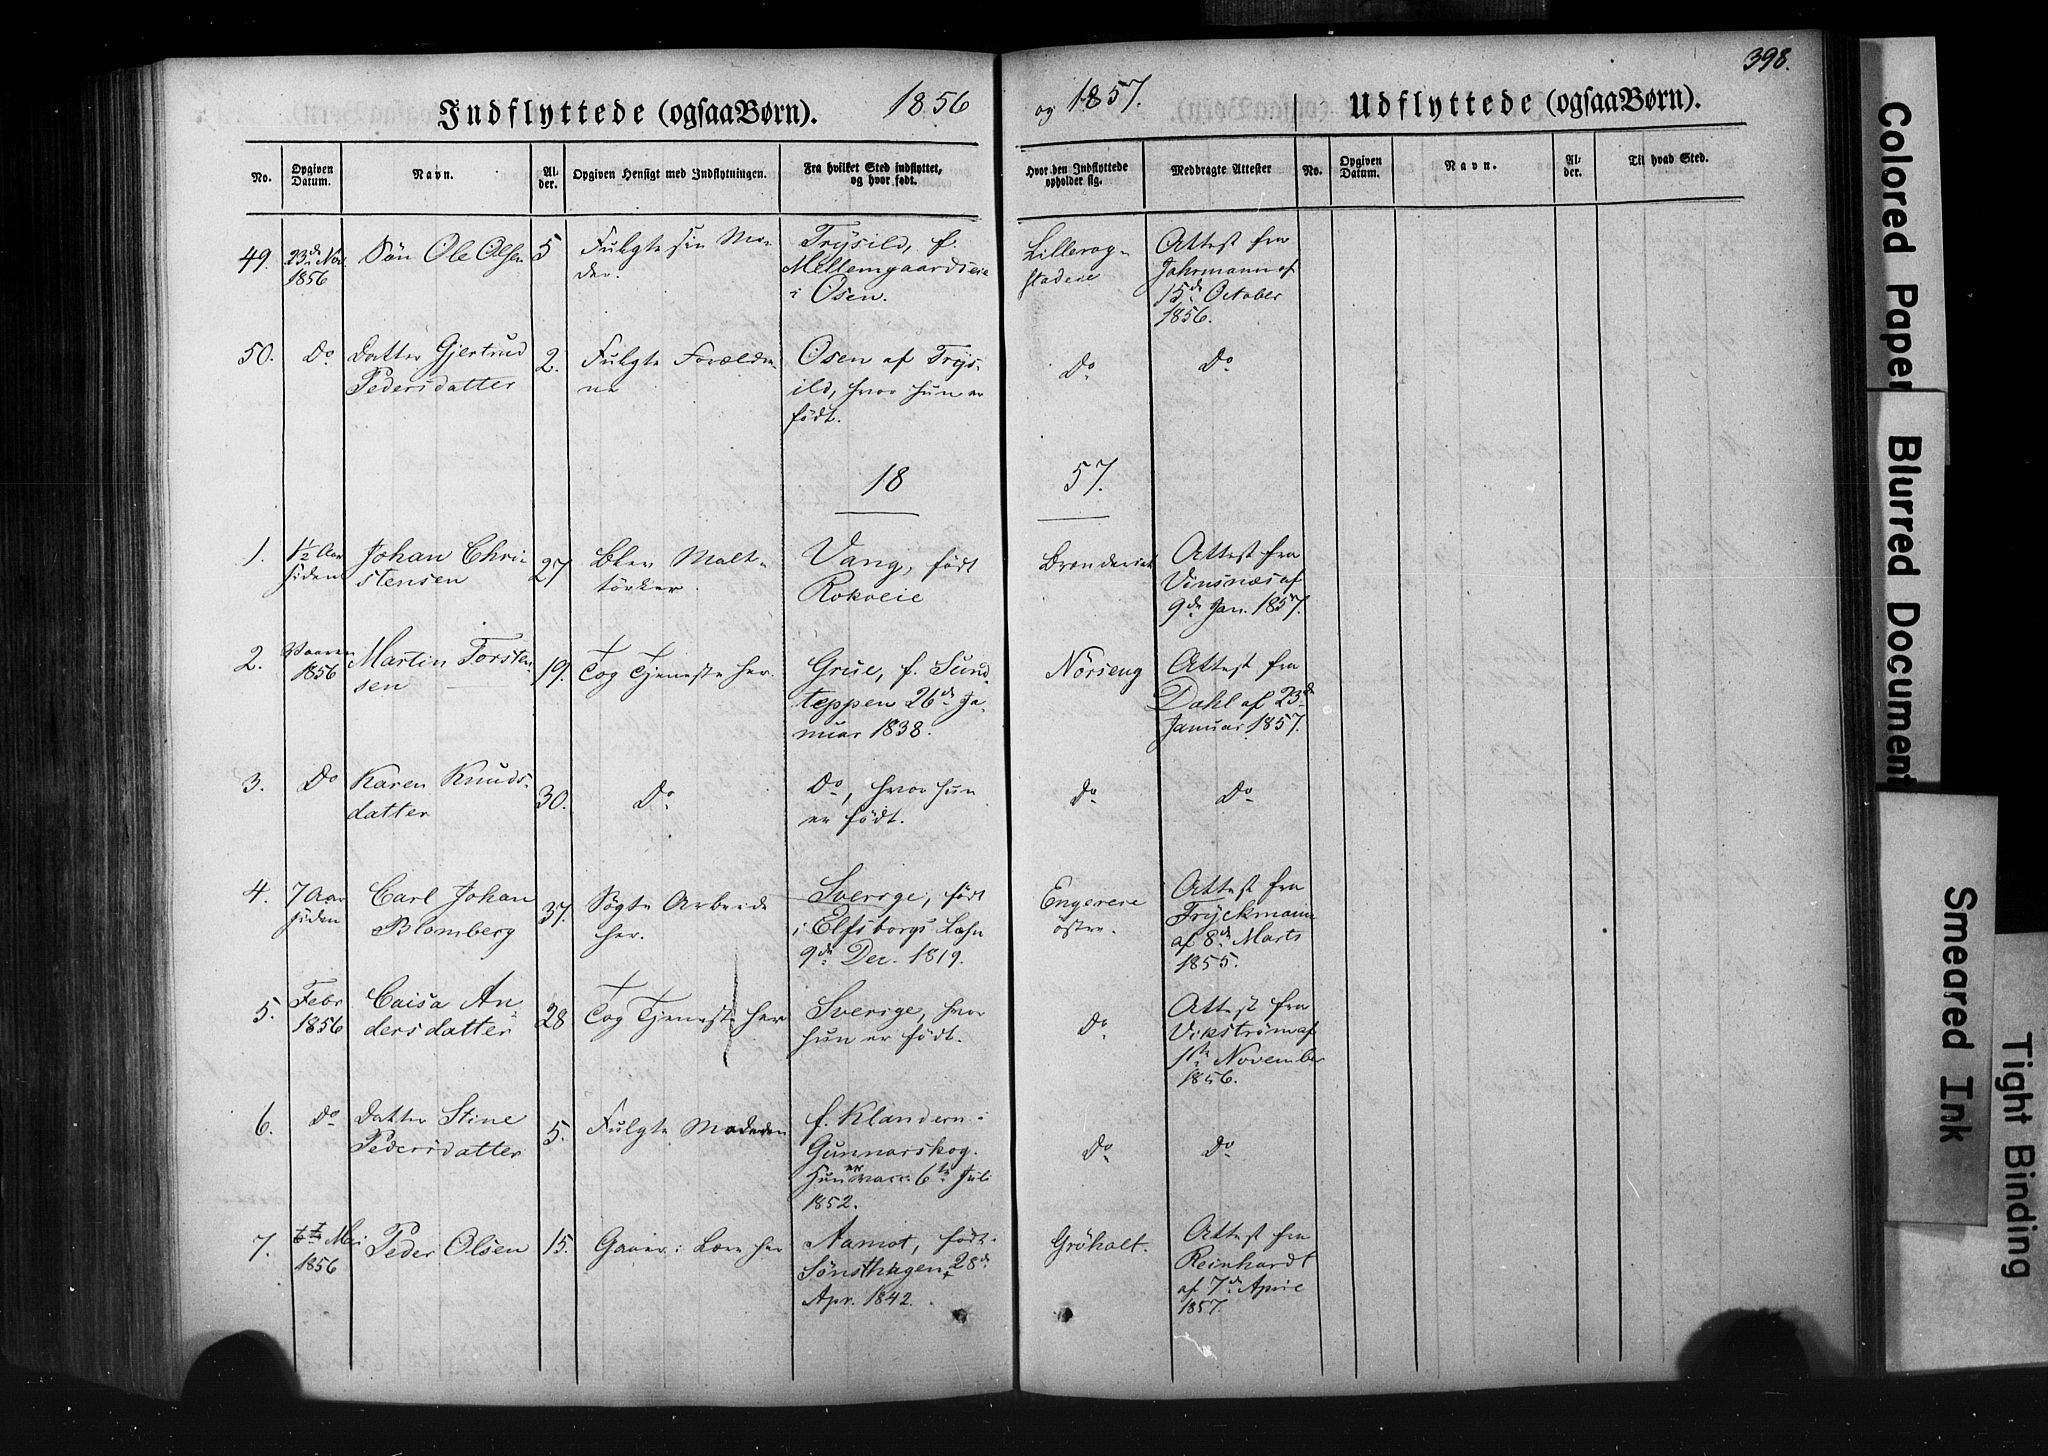 398.
Indflyttede (ogsaa Børn). 1856
og 1857. Udflyttede (ogsaa Børn).
No. Opgiven Datum. Navn. Al-der. Opgiven Hensigt med Indflytningen. Fra hvilket Sted indflyttet, og hvor født.
Hvor den Indflyttede opholder sig. Medbragte Attester No. Opgiven Datum. Navn. Al-der. Til hvad Sted.
49. 23de Nov. 1856 Søn Ole Olsen 5 Fulgte sin Mo-
der. Trysild, f.
Mellemgaardseie
i Osen. Lillerog-
stadeie Attest fra
Jahrmann af
15de October
1856.
50. Do Datter Gjertrud
Pedersdatter 2. Fulgte Forældre
ne Osen af Trys-
ild, hvor hun er
født. Do Do
18 57.
1. 1½ Aar
siden Johan Chri
stensen 27 Blev Malt-
tørker Vang, født
Rokoeie Brænderiet Attest fra
Vinsnæs af
9de Jan. 1857.
2. Vaaren
1856 Martin Torsten
sen 19. Tog Tjeneste her. Grue, f. Sund-
teppen 26de Ja-
nuar 1838. Nørseng Attest fra
Dahl af 23de
Januar 1857.
3. Do Karen Knuds-
datter 30. Do Do, hvor hun
er født. Do Do
4. 7 Aar
siden Carl Johan
Blomberg 37. Søgte Arbeide
her. Sverige, født
i Elfsborgs Læhn
9de Dec. 1819. Engereie
østre. Attest fra
Fryckmann
af 8de Marts
1855.
5. Febr
1856 Caisa An
dersdatter 28 Tog Tjeneste her Sverige, hvor
hun er født. Do Attest fra
Vikstrøm af
1ste November
1856.
6. Do Datter Stine
Pedersdatter 5. Fulgte Moderen f. Klandern i
Gunnarskog.
Hun er vacc. 6te Juli
1852. Do Do
7. Mai
1856 Peder Olsen 15. Gaaer i Lære her Aamot, født
Sønsthagen, 28de
Apr. 1842. Grøholt. Attest fra
Reinhardt
af 7de April
1857.
Colored Paper
Blurred Document
Smeared Ink
Tight Binding